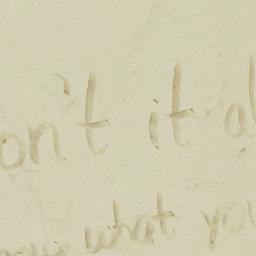 on't it al
what you